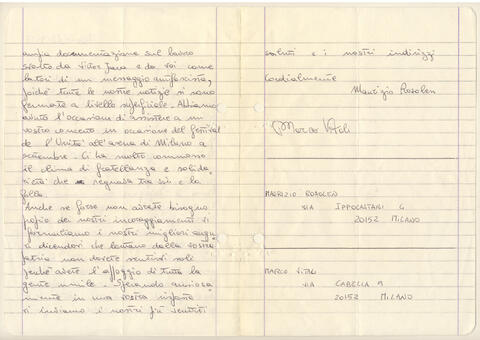 ampia documentazione sul lavoro
svolto da Victor Jara e da voi come
latori di un messaggio antifascista,
poiché tutte le nostre notizie si sono
fermate a livello superficiale. Abbiamo
avuto l'occasione di assistere a un
vostro concerto in occasione del festival
de l'Unità all'arena di Milano a
settembre. Ci ha molto commosso
il clima di fratellanza e solida
rietà che regnava tra voi e la
folla.
Anche se forse non avrete bisogno
proprio dei nostri incoraggiamenti vi
formuliamo i nostri migliori augu
ri dicendovi che lontano dalla vostra
patria non dovete sentirvi soli
perché avete l'appoggio di tutta la
gente umile. Sperando ansiosa
mente in una vostra risposta
vi inviamo i nostri più sentiti
saluti e i nostri indirizzi
Cordialmente
Maurizio Rosolen
Marco Vitali
MAURIZIO ROSOLEN
VIA IPPOCASTANI 6
20152 MILANO
MARCO VITALI
VIA CABELLA 9
20152 MILANO